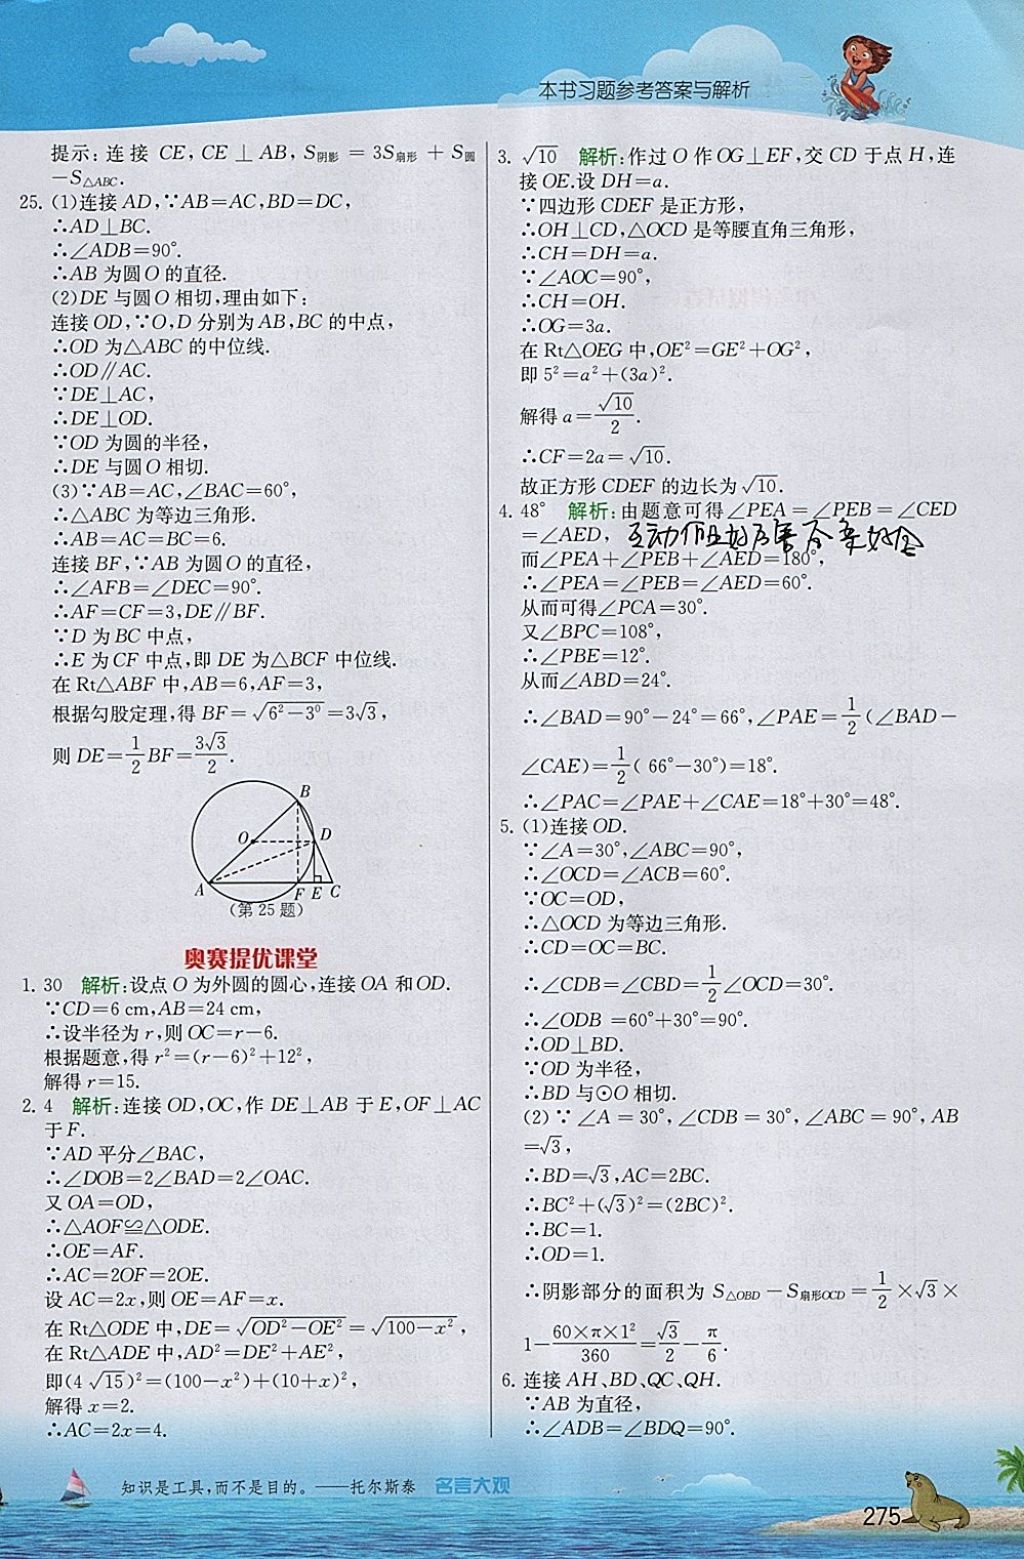 本书习题参考答案与解析
提示:连接 CE,CE⊥AB,S阴影=3S扇形+S圆
-S△ABC.
25.(1)连接 AD,∵AB=AC,BD=DC,
∴AD⊥BC.
∴∠ADB=90°.
∴AB 为圆 O 的直径.
(2)DE 与圆 O 相切,理由如下:
连接 OD,∵O,D 分别为 AB,BC 的中点,
∴OD 为△ABC 的中位线.
∴OD∥AC.
∵DE⊥AC,
∴DE⊥OD.
∵OD 为圆的半径,
∴DE 与圆 O 相切.
(3)∵AB=AC,∠BAC=60°,
∴△ABC 为等边三角形.
∴AB=AC=BC=6.
连接 BF,∵AB 为圆 O 的直径,
∴∠AFB=∠DEC=90°.
∴AF=CF=3,DE∥BF.
∵D 为 BC 中点,
∴E 为 CF 中点,即 DE 为△BCF 中位线.
在 Rt△ABF 中,AB=6,AF=3,
根据勾股定理,得 BF=√(6²-3⁰)=3√3,
则 DE=1/2 BF=3√3/2.
B
O D
A F E C
(第 25 题)
奥赛提优课堂
1. 30 解析:设点 O 为外圆的圆心,连接 OA 和 OD.
∵CD=6 cm,AB=24 cm,
∴设半径为 r,则 OC=r-6.
根据题意,得 r²=(r-6)²+12²,
解得 r=15.
2. 4 解析:连接 OD,OC,作 DE⊥AB 于 E,OF⊥AC
于 F.
∵AD 平分∠BAC,
∴∠DOB=2∠BAD=2∠OAC.
又 OA=OD,
∴△AOF≌△ODE.
∴OE=AF.
∴AC=2OF=2OE.
设 AC=2x,则 OE=AF=x.
在 Rt△ODE 中,DE=√(OD²-OE²)=√(100-x²),
在 Rt△ADE 中,AD²=DE²+AE²,
即(4√15)²=(100-x²)+(10+x)²,
解得 x=2.
∴AC=2x=4.
3. √10 解析:作过 O 作 OG⊥EF,交 CD 于点 H,连
接 OE.设 DH=a.
∵四边形 CDEF 是正方形,
∴OH⊥CD,△OCD 是等腰直角三角形,
∴CH=DH=a.
∵∠AOC=90°,
∴CH=OH.
∴OG=3a.
在 Rt△OEG 中,OE²=GE²+OG²,
即 5²=a²+(3a)².
解得 a=√10/2.
∴CF=2a=√10.
故正方形 CDEF 的边长为√10.
4. 48° 解析:由题意可得∠PEA=∠PEB=∠CED
=∠AED,
而∠PEA+∠PEB+∠AED=180°,
∴∠PEA=∠PEB=∠AED=60°.
从而可得∠PCA=30°.
又∠BPC=108°,
∴∠PBE=12°.
从而∠ABD=24°.
∴∠BAD=90°-24°=66°,∠PAE=1/2(∠BAD-
∠CAE)=1/2(66°-30°)=18°.
∴∠PAC=∠PAE+∠CAE=18°+30°=48°.
5.(1)连接 OD.
∵∠A=30°,∠ABC=90°,
∴∠OCD=∠ACB=60°.
∵OC=OD,
∴△OCD 为等边三角形.
∴CD=OC=BC.
∴∠CDB=∠CBD=1/2∠OCD=30°.
∴∠ODB=60°+30°=90°.
∴OD⊥BD.
∵OD 为半径,
∴BD 与⊙O 相切.
(2)∵∠A=30°,∠CDB=30°,∠ABC=90°,AB
=√3,
∴BD=√3,AC=2BC.
∴BC²+(√3)²=(2BC)².
∴BC=1.
∴OD=1.
∴阴影部分的面积为 S△OBD-S扇形OCD=1/2×√3×
1-60×π×1²/360=√3/2-π/6.
6. 连接 AH、BD、QC、QH.
∵AB 为直径,
∴∠ADB=∠BDQ=90°.
知识是工具,而不是目的。——托尔斯泰 名言大观
275